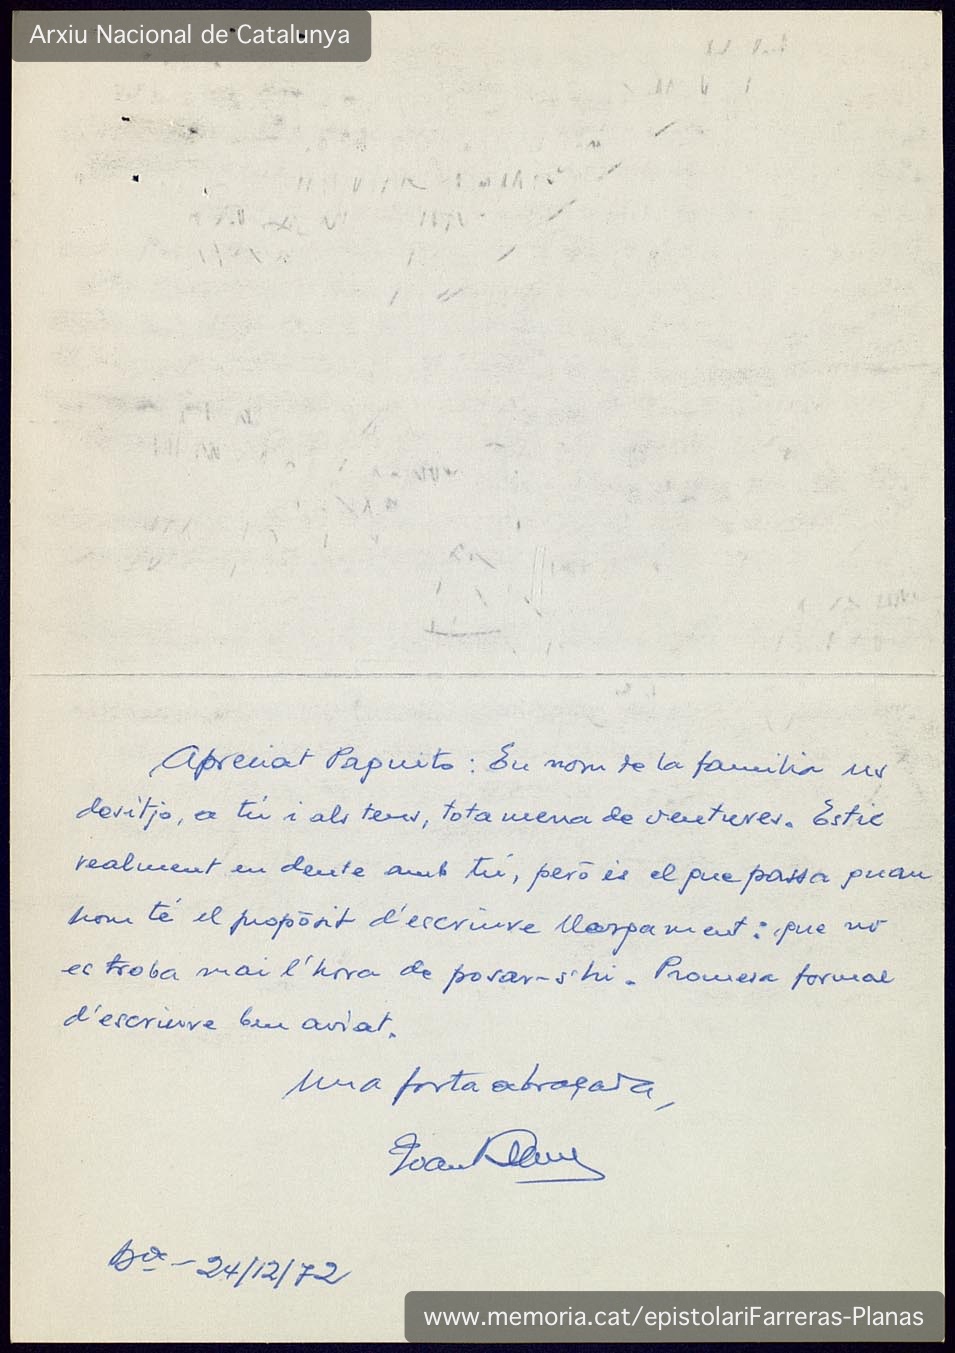 Arxiu Nacional de Catalunya
Apreciat Paquito: En nom de la familia us
desitjo, a tú i als teus, tota mena de ventures. Estic
realment en deute amb tú, però és el que passa quan
hom té el propòsit d'escriure llargament: que no
es troba mai l'hora de posar-s'hi. Promesa formal
d'escriure ben aviat.
Una forta abraçada,
Joan
Bna - 24/12/72
www.memoria.cat/epistolariFarreras-Planas